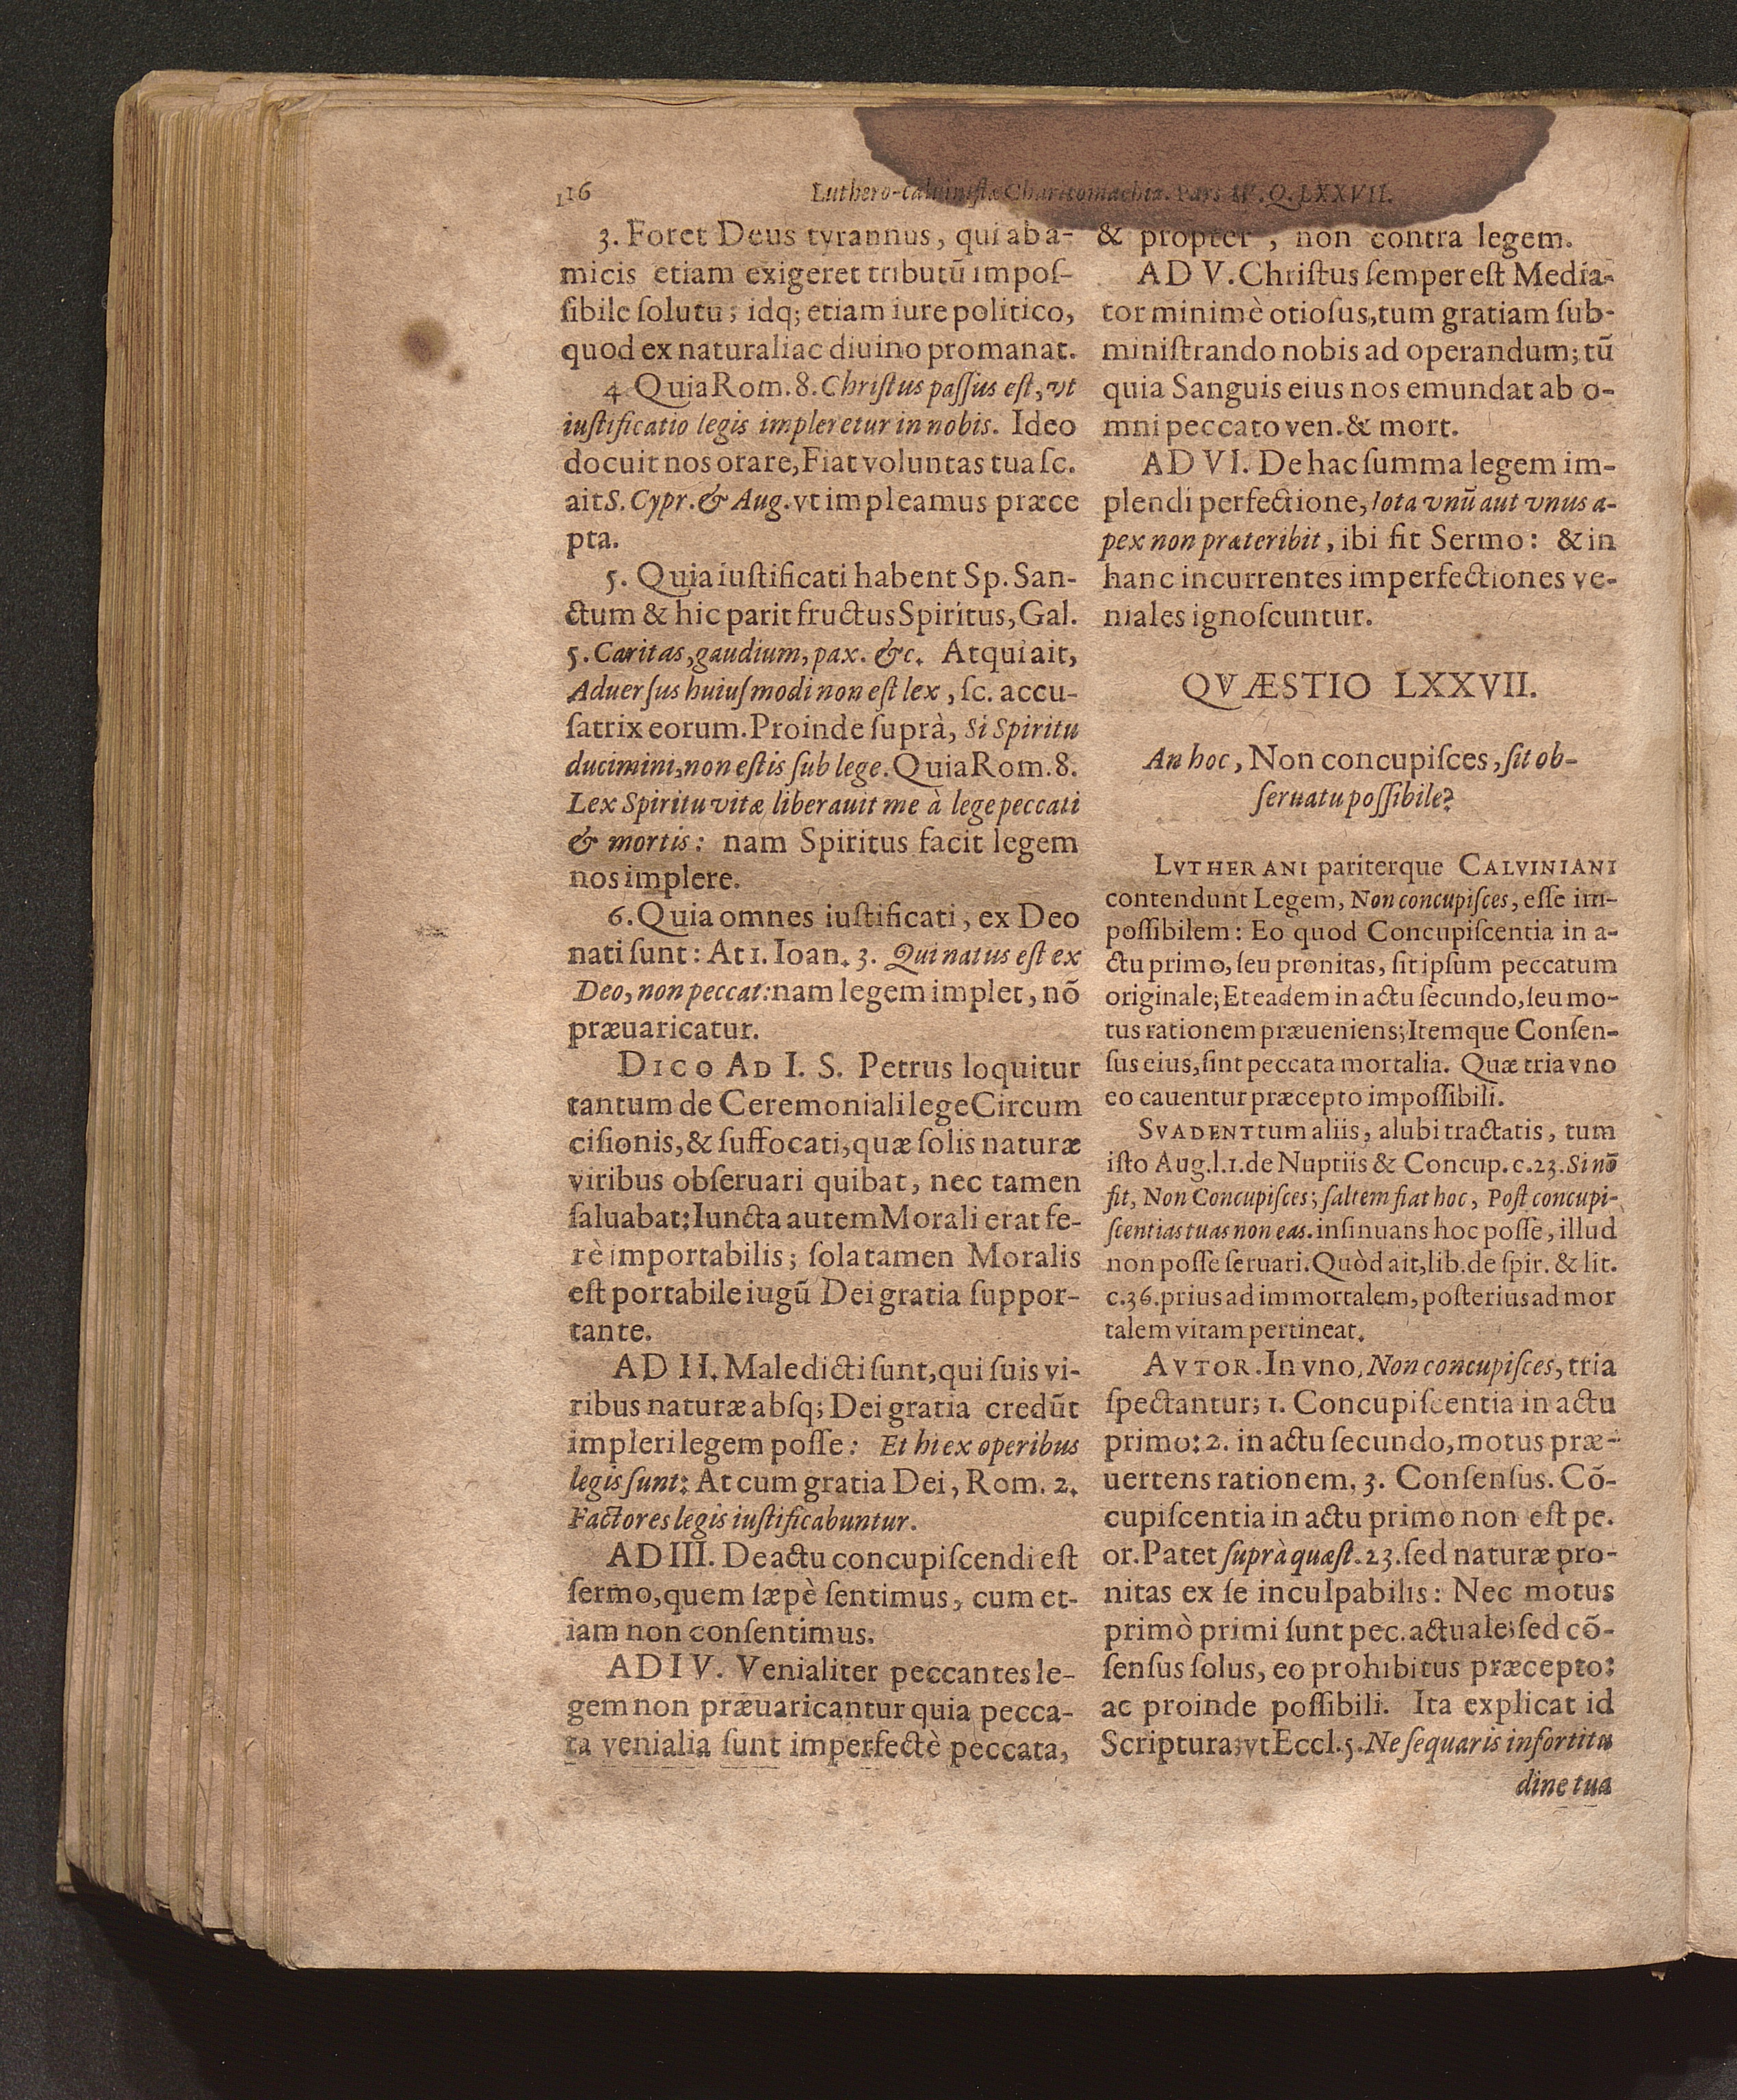 116
Luthero-Calviniſtæ Charitomachia. Pars IV. Q. LXXVII.
3. Foret Deus tyrannus, qui ab a-
micis etiam exigeret tributũ impoſ-
ſibile ſolutu; idq; etiam iure politico,
quod ex naturali ac diuino promanat.
4 Quia Rom. 8. Chriſtus paſſus eſt, vt
iuſtificatio legis impleretur in nobis. Ideo
docuit nos orare, Fiat voluntas tua ſc.
ait S. Cypr. & Aug. vt impleamus præce
pta.
5. Quia iuſtificati habent Sp. San-
ctum & hic parit fructus Spiritus, Gal.
5. Caritas, gaudium, pax. &c. Atqui ait,
Aduerſus huiuſmodi non eſt lex, ſc. accu-
ſatrix eorum. Proinde ſuprà, Si Spiritu
ducimini, non eſtis ſub lege. Quia Rom. 8.
Lex Spiritu vitæ liberauit me à lege peccati
& mortis: nam Spiritus facit legem
nos implere.
6. Quia omnes iuſtificati, ex Deo
nati ſunt: At 1. Ioan. 3. Qui natus eſt ex
Deo, non peccat: nam legem implet, nõ
præuaricatur.
DICO AD I. S. Petrus loquitur
tantum de Ceremoniali lege Circum
ciſionis, & ſuffocati, quæ ſolis naturæ
viribus obſeruari quibat, nec tamen
ſaluabat: Iuncta autem Morali erat fe-
rè importabilis; ſola tamen Moralis
eſt portabile iugũ Dei gratia ſuppor-
tante.
AD II. Maledicti ſunt, qui ſuis vi-
ribus naturæ abſq; Dei gratia credũt
impleri legem poſſe: Et hi ex operibus
legis ſunt: At cum gratia Dei, Rom. 2.
Factores legis iuſtificabuntur.
AD III. De actu concupiſcendi eſt
ſermo, quem ſæpè ſentimus, cum et-
iam non conſentimus.
AD IV. Venialiter peccantes le-
gem non præuaricantur quia pecca-
ta venialia ſunt imperfectè peccata,
& propter, non contra legem.
AD V. Chriſtus ſemper eſt Media-
tor minimè otioſus, tum gratiam ſub-
miniſtrando nobis ad operandum; tũ
quia Sanguis eius nos emundat ab o-
mni peccato ven. & mort.
AD VI. De hac ſumma legem im-
plendi perfectione, Iota vnũ aut vnus a-
pex non præteribit, ibi fit Sermo: & in
hanc incurrentes imperfectiones ve-
niales ignoſcuntur.
QVÆSTIO LXXVII.
An hoc, Non concupiſces, ſit ob-
ſeruatu poſſibile?
LVTHERANI pariterque CALVINIANI
contendunt Legem, Non concupiſces, eſſe im-
poſſibilem: Eo quod Concupiſcentia in a-
ctu primo, ſeu pronitas, ſit ipſum peccatum
originale; Et eadem in actu ſecundo, ſeu mo-
tus rationem præueniens; Itemque Conſen-
ſus eius, ſint peccata mortalia. Quæ tria vno
eo cauentur præcepto impoſſibili.
SVADENT tum aliis, alubi tractatis, tum
iſto Aug. l. 1. de Nuptiis & Concup. c. 23. Si nõ
fit, Non Concupiſces; ſaltem fiat hoc, Poſt concupi-
ſcentias tuas non eas. inſinuans hoc poſſe, illud
non poſſe ſeruari. Quòd ait, lib. de ſpir. & lit.
c. 36. prius ad immortalem, poſterius ad mor
talem vitam pertineat.
AVTOR. In vno, Non concupiſces, tria
ſpectantur; 1. Concupiſcentia in actu
primo: 2. in actu ſecundo, motus præ-
uertens rationem, 3. Conſenſus. Cõ-
cupiſcentia in actu primo non eſt pe.
or. Patet ſuprà quæſt. 23. ſed naturæ pro-
nitas ex ſe inculpabilis: Nec motus
primò primi ſunt pec. actuale; ſed cõ-
ſenſus ſolus, eo prohibitus præcepto:
ac proinde poſſibili. Ita explicat id
Scriptura; vt Eccl. 5. Ne ſequaris in fortitu
dine tua